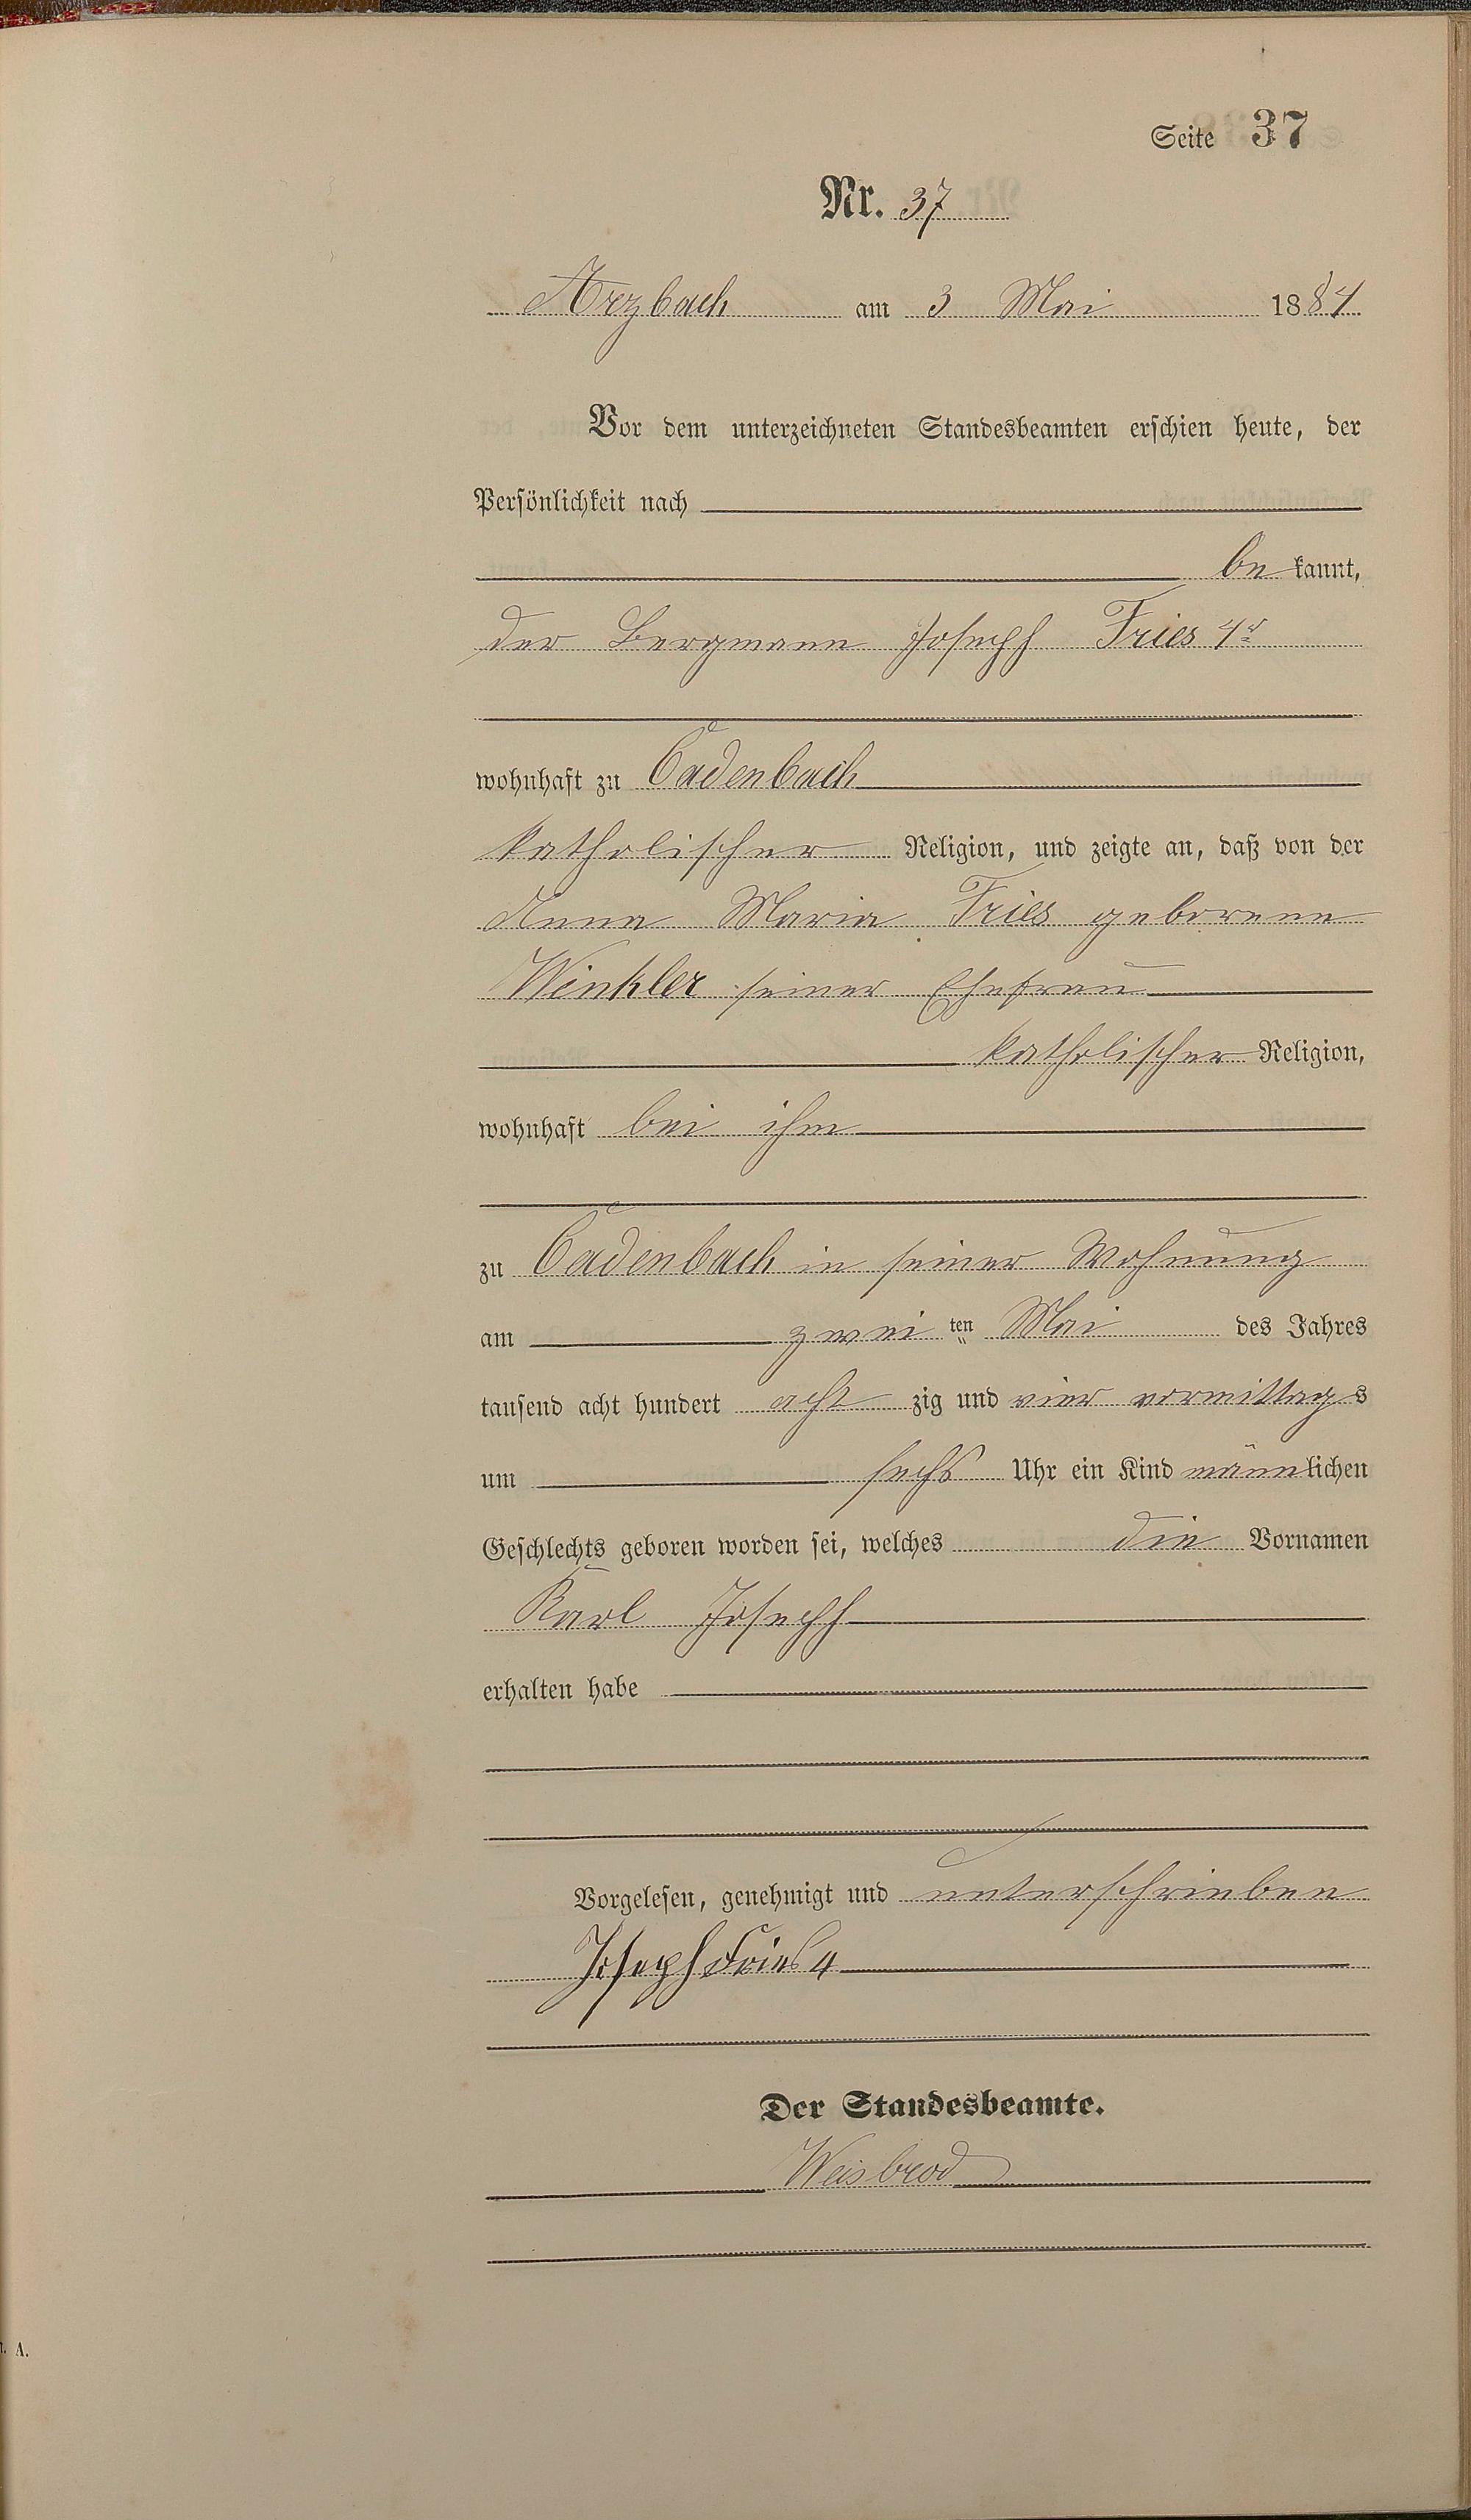 Seite 37
Nr. 37
Arzbach am 3 Mai 1884
Vor dem unterzeichneten Standesbeamten erschien heute, der
Persönlichkeit nach
bekannt,
der Bergmann Joseph Fries 4r
wohnhaft zu Cadenbach
katholischer Religion, und zeigte an, daß von der
Anna Maria Fries geborene
Winkler seiner Ehefrau
katholischer Religion,
wohnhaft bei ihm
zu Cadenbach in seiner Wohnung
am zweiten Mai des Jahres
tausend acht hundert achtzig und vier vormittags
um sechs Uhr ein Kind männlichen
Geschlechts geboren worden sei, welches die Vornamen
Karl Joseph
erhalten habe
Vorgelesen, genehmigt und unterschrieben
Joseph Fries 4
Der Standesbeamte.
Weisbrod
A.